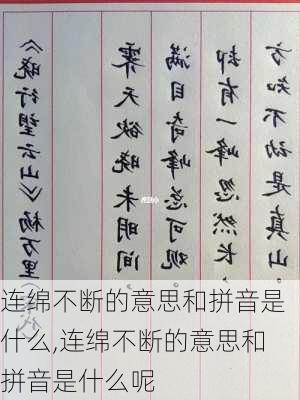 《晓行望云山》杨万里
霁天欲晓未明间，
满目奇峰总可观。
却有一峰忽然长，
方知不动是真山。
连绵不断的意思和拼音是
什么,连绵不断的意思和
拼音是什么呢